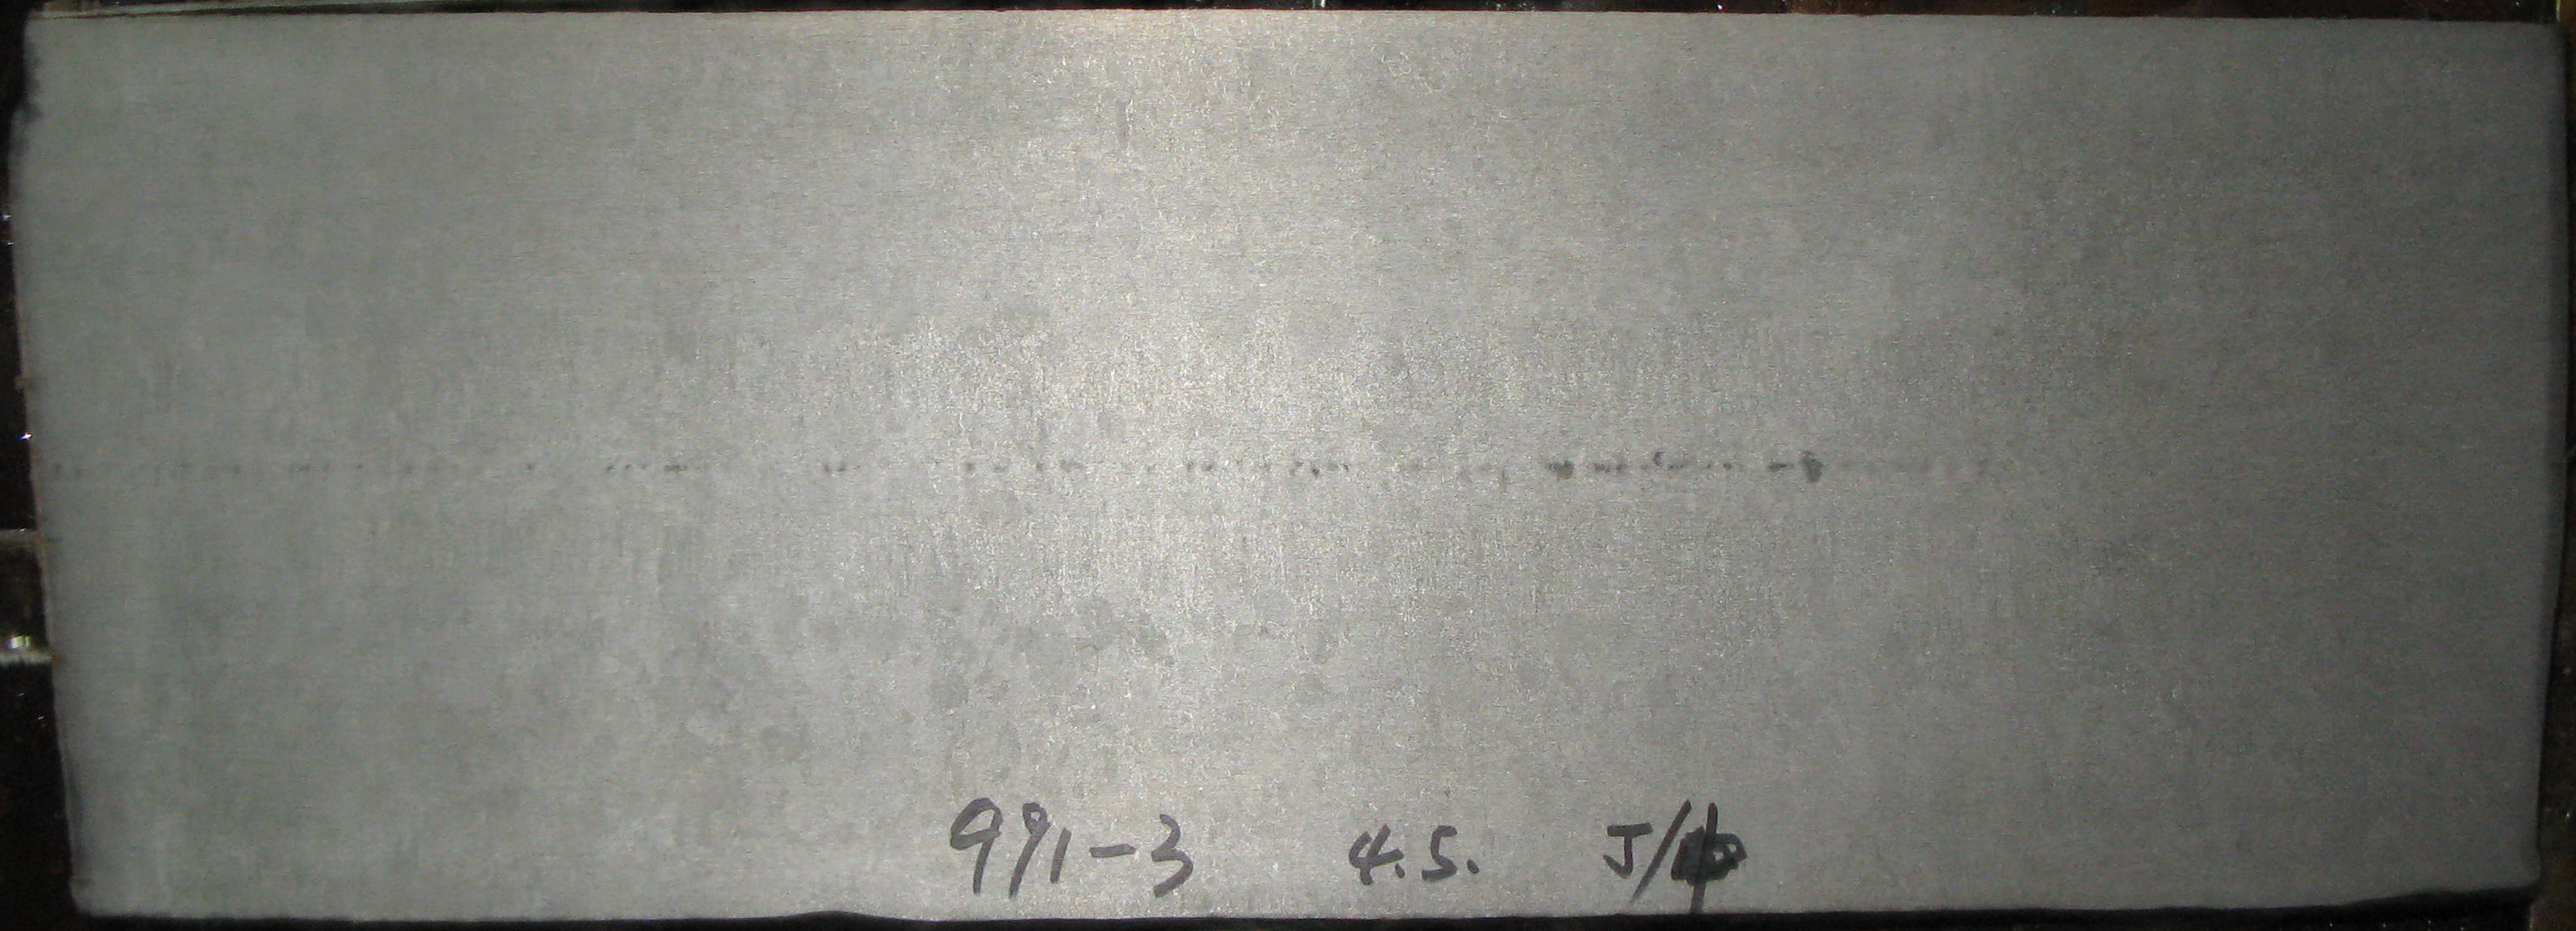 991-3 4.5. J/中